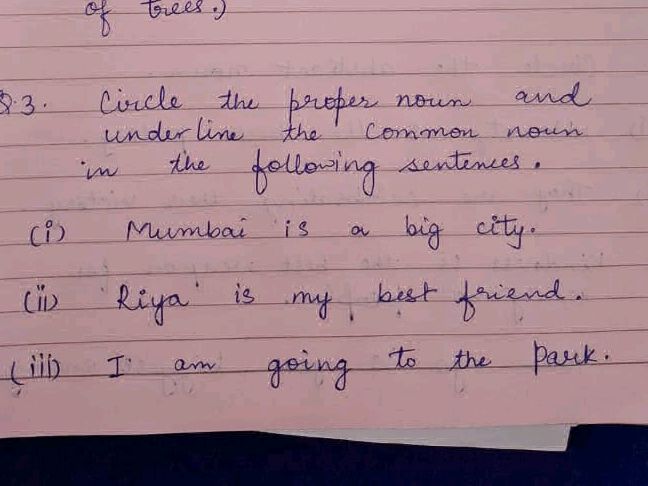 of trees.)
Q.3. Circle the proper noun and
underline the common noun
in the following sentences.
(i) Mumbai is a big city.
(ii) Riya is my best friend.
(iii) I am going to the park.